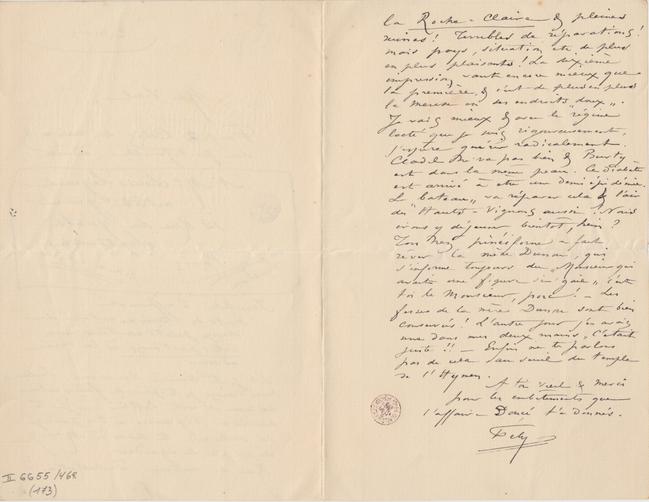 la Roche-Claire & pleines
ruines! Terribles de réparations!
mais pays, situation etc de plus
en plus plaisants! La dixième
impression vaut encore mieux que
la première, & c'est de plus en plus
la Meuse en ses endroits "doux".
Je vais mieux & avec le régime
lacté que je suis rigoureusement,
j'espère guérir radicalement.
Cladel ne va pas bien & Burty
est dans la même peau. Ce diabète
est arrivé à être un demi épidémie.
Le bateau, va réparer cela & l'air
des "Hauts-Vignons aussi! Nous
irons y déjeuner bientôt, hein?
Ton nez a fait
rêver la mère Dusson, qui
s'informe toujours du "Monsieur qui
avait une figure si gaie" c'est
toi le Monsieur, porc! – Les
fesses de la mère Dusson sont bien
conservés! L'autre jour j'en avais
une dans mes deux mains, c'était
juste!! – Enfin ne te parlons
pas de cela au seuil du temple
de l'Hymen.
A toi vieil & merci
pour les embêtements que
l'affaire Doucé t'a donnés.
Fély
II 6655/468
(173)